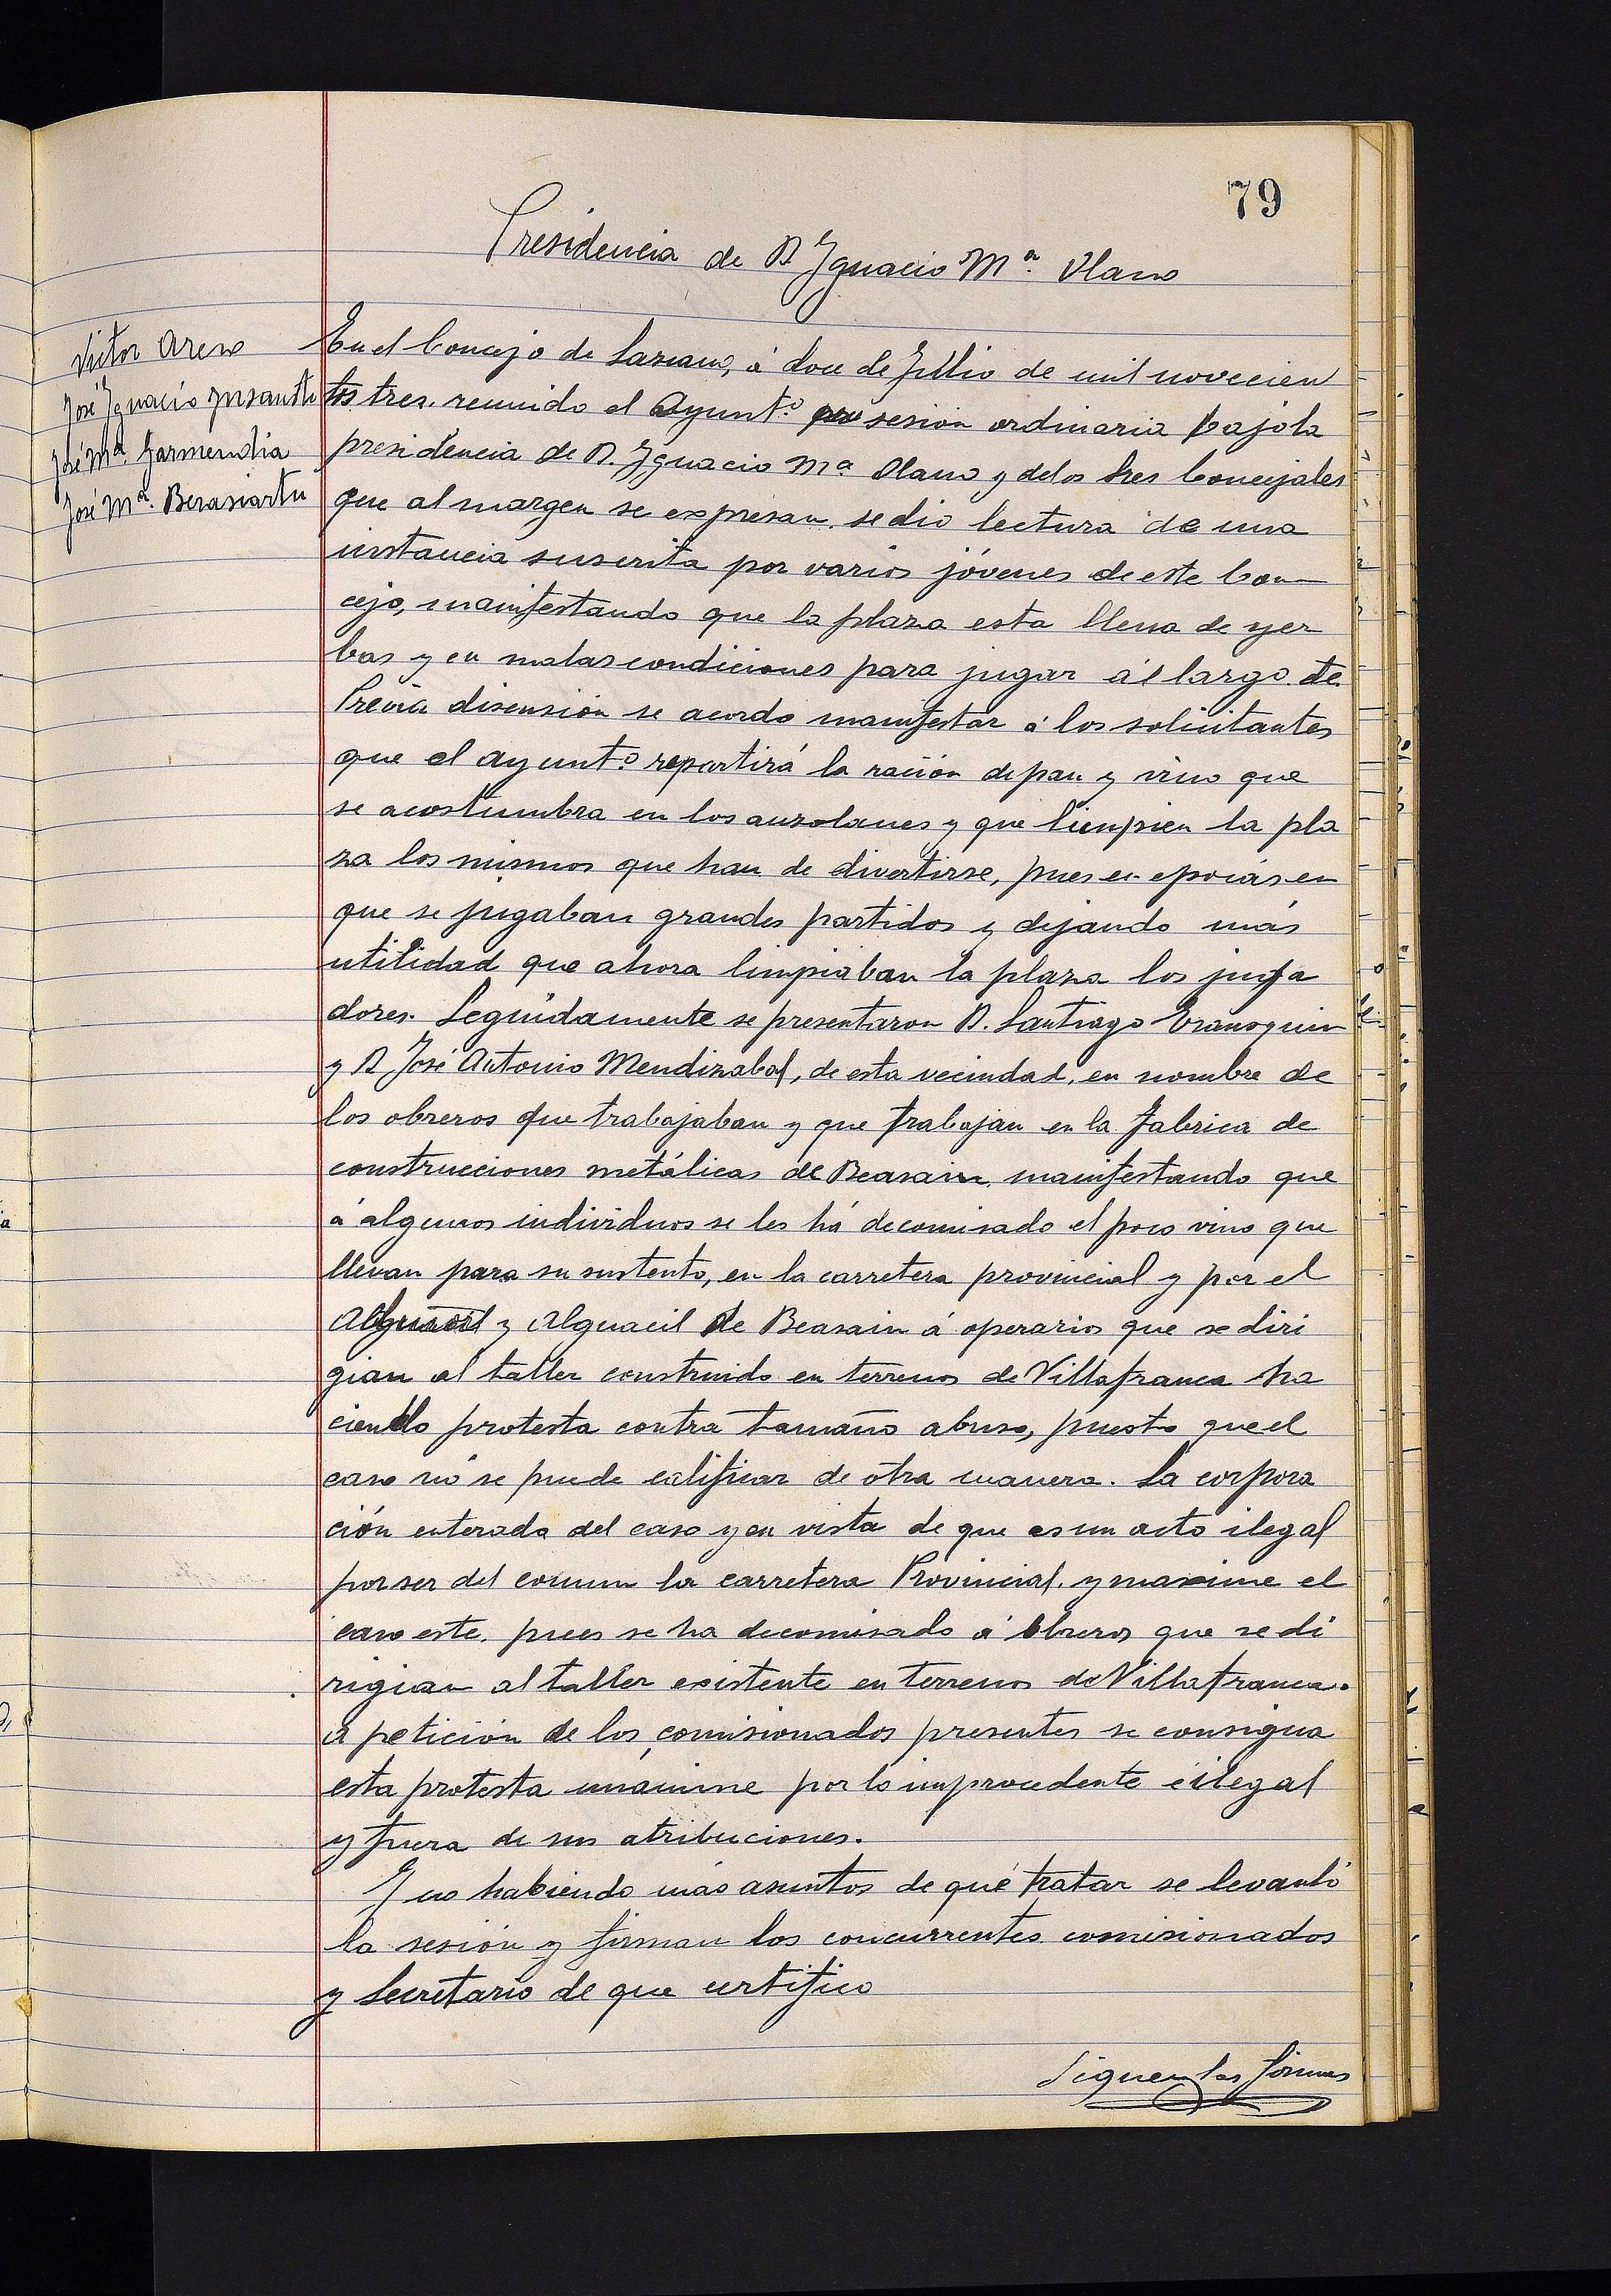 79
Presidencia de D Ygnacio Mª. Olano
Victor Areso
José Ygnacio Ynsausti
José Mª. Garmendia
José Mª. Berasiartu
En el Concejo de Lazcano, á doce de Julio de mil novecien
tos tres. reunido el Ayuntº. en sesión ordinaria bajo la
presidencia de D. Ygnacio Mª Olano y de los tres Concejales
que al margen se expresan. se dió lectura de una
instancia suscrita por varios jóvenes de este Con
cejo, manifestando que la plaza esta llena de yer
bas y en malas condiciones para jugar á l largo. te.
Previa discusión se acordó manifestar á los solicitantes
que el ayuntº. repartirá la ración de pan y vino que
se acostumbra en los auzolanes y que limpien la pla
za los mismos que han de divertirse, pues en epocas en
que se jugaban grandes partidos y dejando más
utilidad que ahora limpiaban la plaza los juga
dores. Seguidamente se presentaron D. Santiago
y D. José Antonio Mendizabal, de esta vecindad, en nombre de
los obreros que trabajaban y que trabajan en la fabrica de
construcciones metálicas de Beasain, manifestando que
á algunos individuos se les há decomisado el poco vino que
llevan para su sustento, en la carretera provincial y por el
y Alguacil de Beasain á operarios que se diri
gian al taller construido en terrenos de Villafranca ha
ciendo protesta contra tamaño abuso, puesto que el
caso nó se puede calificar de otra manera. La corpora
ción enterada del caso y en vista de que es un acto ilegal
por ser del comun la carretera Provincial. y maxime el
caso este. pues se ha decomisado á obreros que se di
rigian al taller existente en terrenos de Villafranca.
á petición de los comisionados presentes se consigna
esta protesta unanime por lo improcedente é ilegal
y fuera de sus atribuciones.
Y no habiendo más asuntos de qué tratar se levantó
la sesión y firman los concurrentes comisionados
y Secretario de que certifico
Siguen las firmas